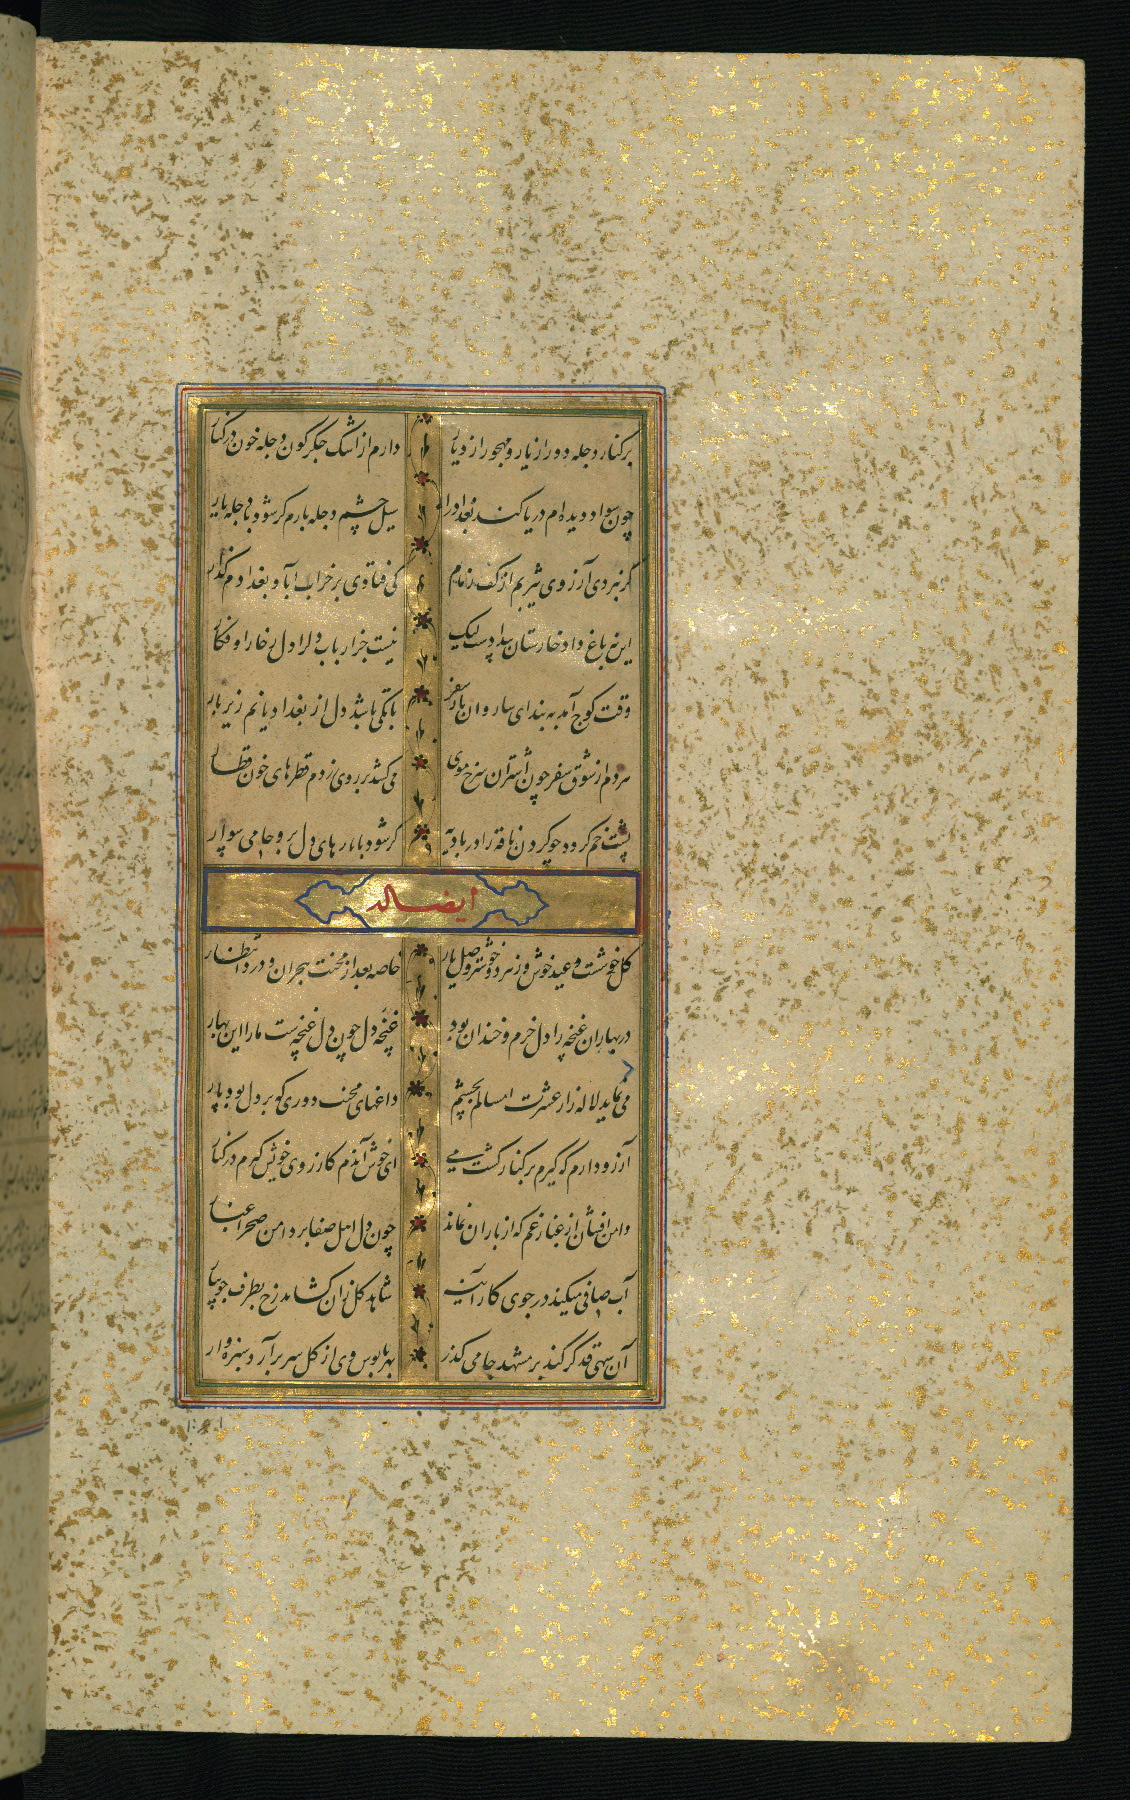 برکنار دجله دور از یار و مهجور از دیار دارم از اشک جکرکون دجله خون در کنار
چون سواد دیده ام دریا کند بغداد را سیل چشم دجله بارم کر شود با دجله یار
کر نبردی آرزوی یثربم از کف زمام کی فتادی بر خراب آباد بغدادم کذار
این نه باغ داد خارستان بیدادست لیک نیست جز ارباب دلرا دل ز خار او فکار
وقت کوچ آمد به بند ای ساروان بار سفر تا بکی باشد دل از بغداد یانم زیر بار
مردم از شوق سفر چون اشتران سرخ موی می کشد بر روی زردم قطرهای خون قطار
پشت خم کرده چو کردن ناقه را در بادیه کر شود با بارهای دل برو جامی سوار
ایضاله
کل خوشست و عید خوش وز هر دو خوشتر وصل یار خاصه بعد از محنت هجران و درد انتظار
در بهاران غنچه را دل خرم و خندان بود غنچه دل چون دل غنچه ست مارا این بهار
می نماید لاله زار عشرت امسالم بچشم داغهای محنت و دوری که بر دل بود پار
آرزو دارم که کیرم بر کنار کشت می ای خوش آندم کارزوی خویش کیرم در کنار
دامن افشان از غبار غم که از باران نماند چون دل اهل صفا بر دامن صحرا غبار
آب صافی میکند در جوی کار آینه شاهد کل زان کشاید رخ بطرف جویبار
آن سهی قد کر کند بر مشهد جامی کذر بهر پابوس وی از کل سر برآرد سبزه وار